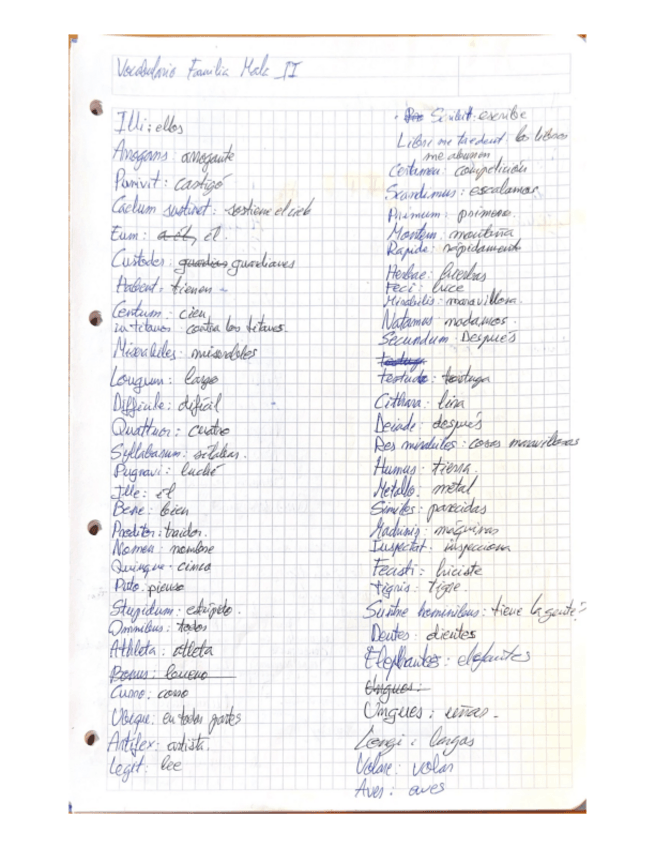 Vocabulario Familia Mala II
Illi: ellos
Arrogans: arrogante
Punivit: castigó
Caelum sustinet: sostiene el cielo
Eum: a él, él.
Custodes: guardias guardianes
Habent: tienen
Centum: cien
in titanos: contra los titanes.
Miserabiles: miserables
Longum: largo
Difficile: difícil
Quattuor: cuatro
Syllabarum: sílabas.
Pugnavi: luché
Ille: él
Bene: bien
Proditor: traidor.
Nomen: nombre
Quinque: cinco
Puto: pienso
Stupidum: estúpido.
Omnibus: todos
Athleta: atleta
Bonus: bueno
Curro: corro
Ubique: en todas partes
Artifex: artista.
Legit: lee
Scribit: escribe
Libri me taedent: los libros
me aburren
Certamen: competición
Scandimus: escalamos
Primum: primero.
Montem: montaña
Rapide: rápidamente
Herbae: hierbas
Feci: hice
Mirabilis: maravillosa.
Natamus: nadamos.
Secundum: Después
tortuga
Testudo: tortuga
Cithara: lira
Deinde: después
Res mirabiles: cosas maravillosas
Humus: tierra.
Metallo: metal
Similes: parecidas
Machinis: máquinas
Inspectat: inspecciona
Fecisti: hiciste
Tigris: tigre.
hominibus: tiene la gente?
Dentes: dientes
Elephantes: elefantes
Ungues:
Ungues: uñas.
Longi: largas
Volare: volar
Aves: aves